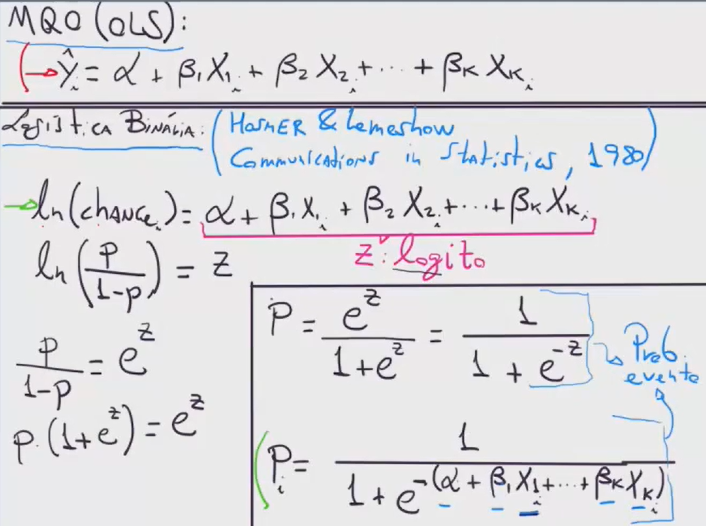 MQO (OLS):
Ŷᵢ = α + β₁X₁ᵢ + β₂X₂ᵢ + ··· + βₖXₖᵢ
Logística Binária: (Hosmer & Lemeshow
Communications in Statistics, 1980)
ln(chanceᵢ) = α + β₁X₁ᵢ + β₂X₂ᵢ + ··· + βₖXₖᵢ
z: logito
ln(p/(1-p)) = z
p/(1-p) = e^z
p·(1+e^z) = e^z
p = e^z/(1+e^z) = 1/(1+e^-z)
Prob.
evento
pᵢ = 1/(1+e^-(α + β₁X₁ᵢ + ··· + βₖXₖᵢ))